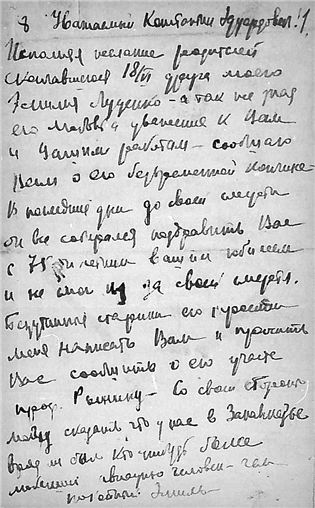 8 Уважаемый Константин Эдуардович!
Исполняя желание родителей
скончавшегося 18/VI друга моего
Эмилия Луценко - а так же зная
его любовь и уважение к Вам
и Вашим работам - сообщаю
Вам о его безвременной кончине.
В последние дни до своей смерти
он все собирался поздравить Вас
с 75ти летним вашим юбилеем
и не смог из за своей смерти.
Безутешные старики его просили
меня написать Вам и просить
Вас сообщить о его участи
проф. Рынину - Со своей стороны
могу сказать что у нас в Закавказье
вряд ли был кто нибудь более
человек - чем
покойный Эмиль